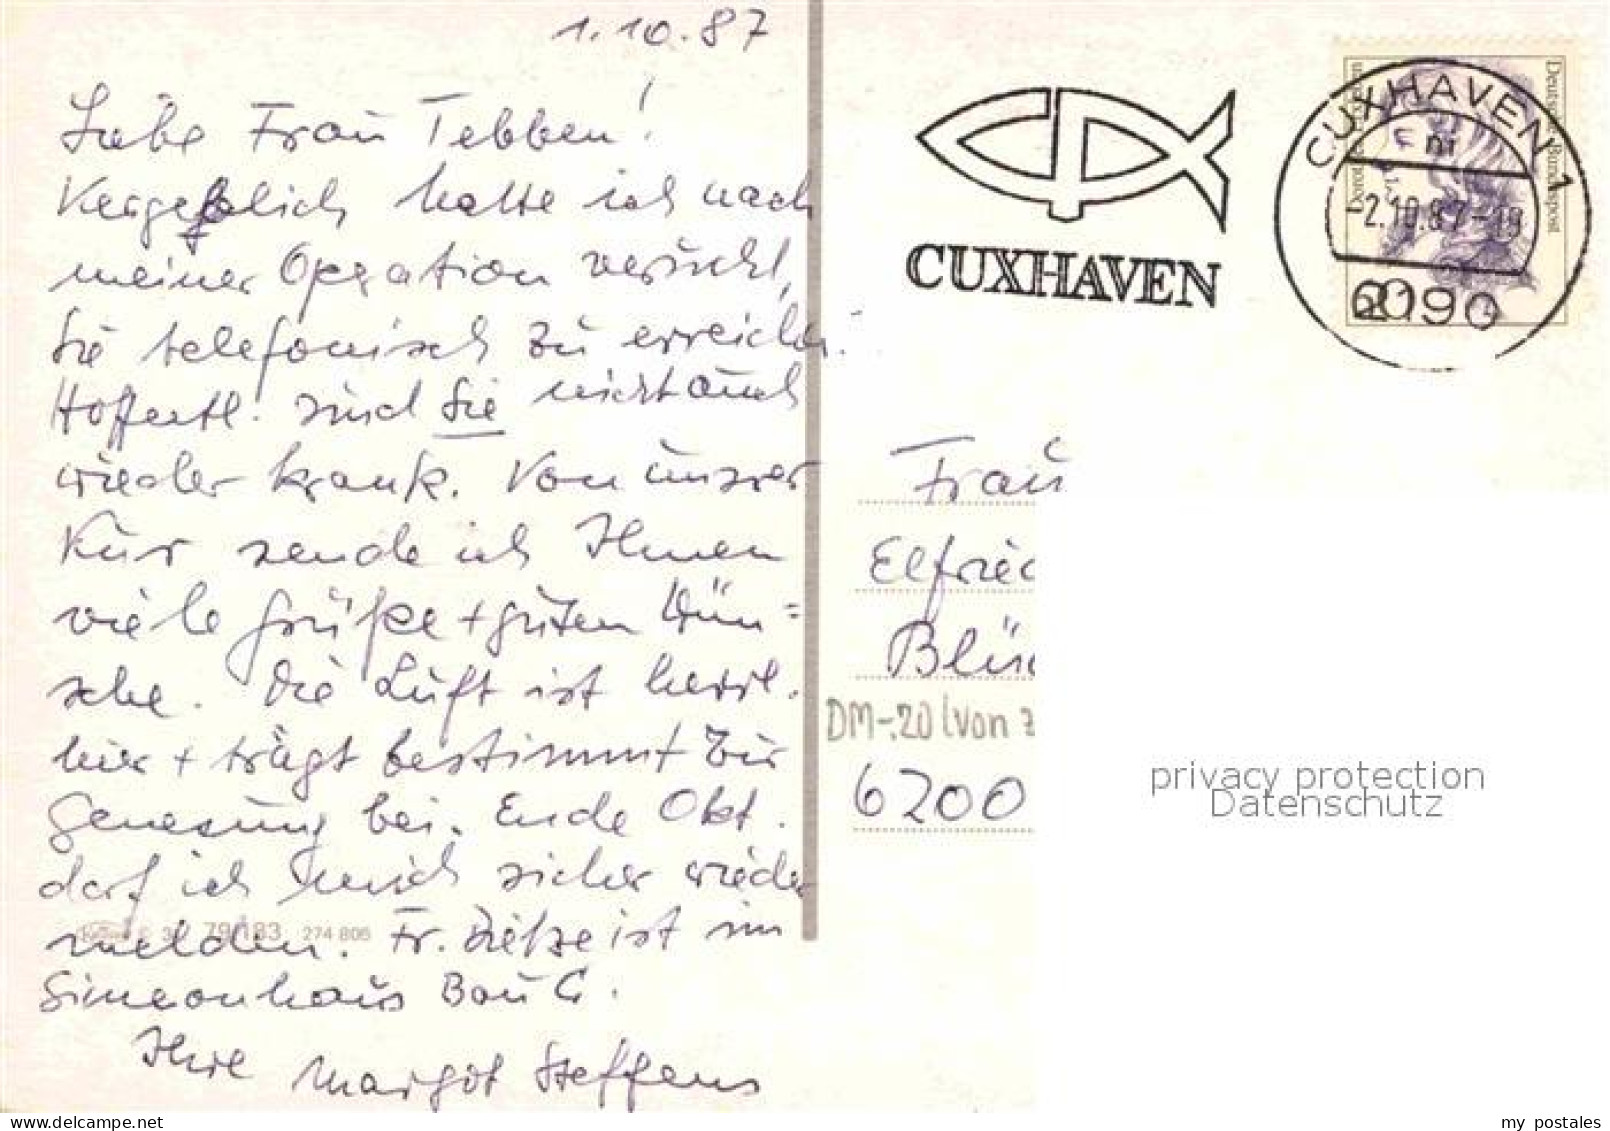 1.10.87
Liebe Frau Tebben!
Vergeblich hatte ich nach
meiner Operation versucht,
Sie telefonisch zu erreichen.
Hoffentl. sind Sie nicht auch
wieder krank. Von unsrer
Kur sende ich Ihnen
viele Grüße + guten Wün=
sche. Die Luft ist herrl.
hier + trägt bestimmt zur
Genesung bei. Ende Okt.
darf ich mich sicher wieder
melden. Fr. Dietze ist im
Simeonhaus Bau C.
Ihre Margot Steffens
79/183 274 806
CUXHAVEN
CUXHAVEN 1
-2.10.87-19
2190
Deutsche Bundespost
60
Frau
Elfried
Blü
DM-.20 (von z
6200
privacy protection
Datenschutz
my postales
www.delcampe.net